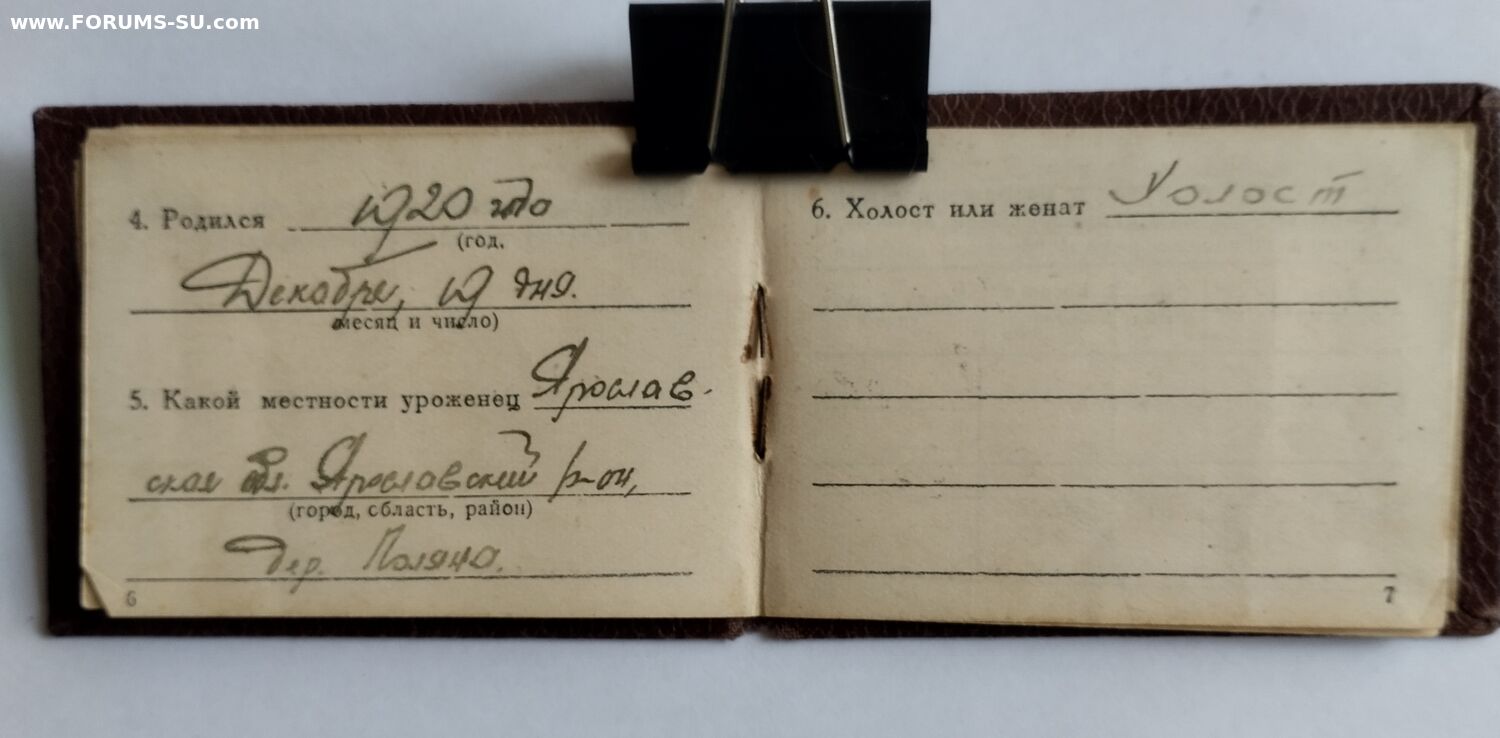 www.FORUMS-SU.com
4. Родился 1920 года
(год,
Декабря, 19 дня.
месяц и число)
5. Какой местности уроженец Ярослав-
ская обл. Ярославский р-он,
(город, область, район)
дер. Поляна.
6
6. Холост или женат Холост
7